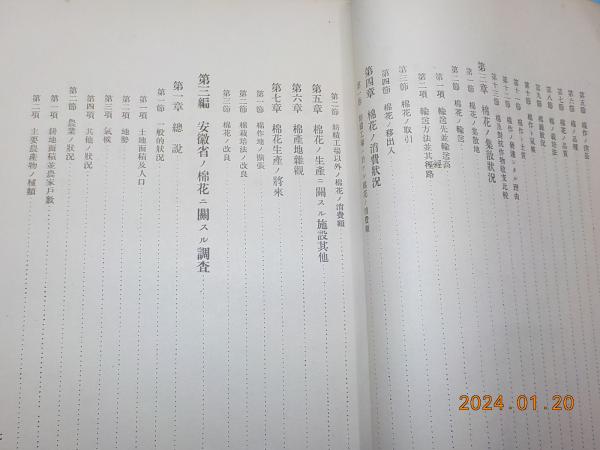 第五節 棉作ノ沿革
第六節 棉花ノ種類
第七節 棉花ノ品質
第八節 棉ノ栽培法
第九節 棉繰狀況
第十節 棉作ト氣候
第十一節 棉作ト土質
第十二節 棉作ノ發達セル理由
第十三節 棉及對抗作物收支比較
第三章 棉花ノ集散狀況
第一節 棉花ノ集散地
第二節 棉花ノ輸送
第一項 輸送先並輸送高
第二項 輸送方法並其經路
第三節 棉花ノ取引
第四節 棉花ノ移出入
第四章 棉花ノ消費狀況
第二節 紡績工場以外ノ棉花ノ消費額
第五章 棉花ノ生產ニ關スル施設其他
第六章 棉產地雜觀
第七章 棉花生產ノ將來
第一節 棉作地ノ擴張
第二節 棉栽培法ノ改良
第三節 棉花ノ改良
第三編 安徽省ノ棉花ニ關スル調查
第一章 總說
第一節 一般的狀況
第一項 土地面積及人口
第二項 地勢
第三項 氣候
第四項 其他ノ狀況
第二節 農業ノ狀況
第一項 耕地面積並農家戶數
第二項 主要農產物ノ種類
2024.01.20